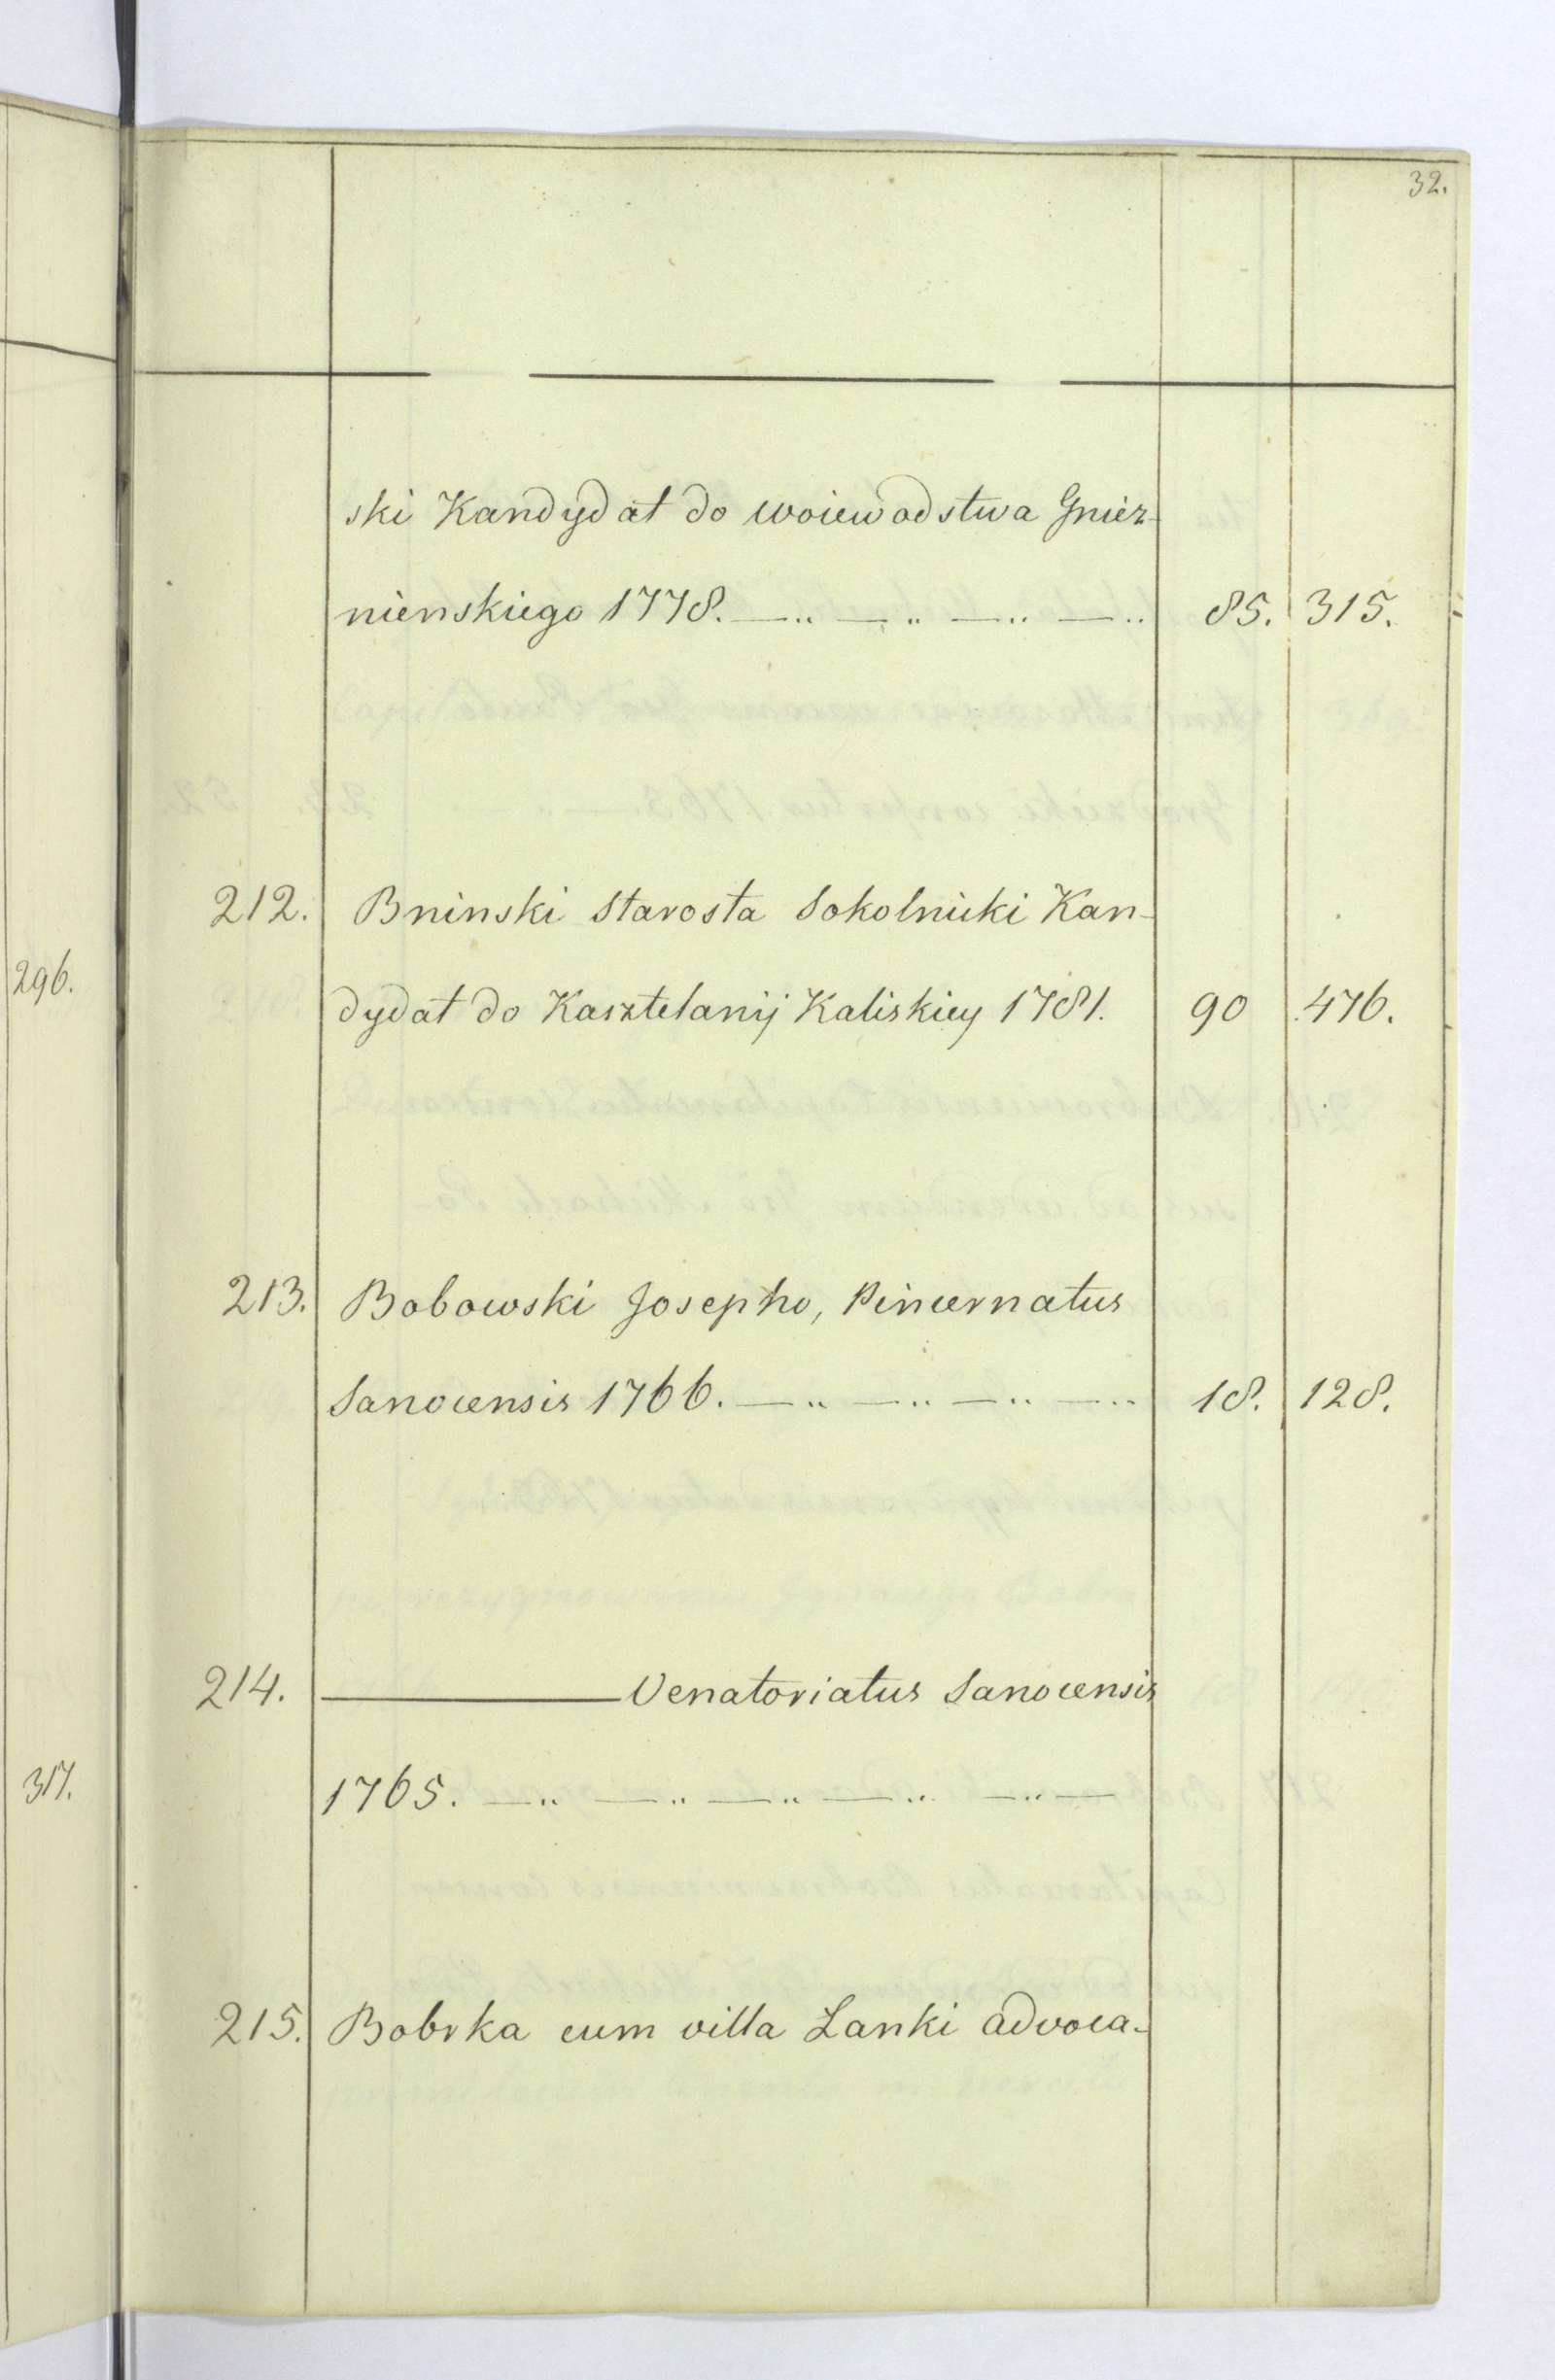 32.
ski Kandydat do woiewodstwa Gniez-
nienskiego 1778. —.. —.. —.. —.. 85. 315.
212. Bninski Starosta Sokolnicki Kan-
dydat do Kasztelanij Kaliskiey 1781. 90 476.
213. Bobowski Josepho, Pincernatus
Sanocensis 1766. —.. —.. —.. —.. 18. 128.
214. ——— Venatoriatus Sanocensis
1765. —.. —.. —.. —.. —.. —
215. Bobrka cum villa Lanki advoca-
296.
317.